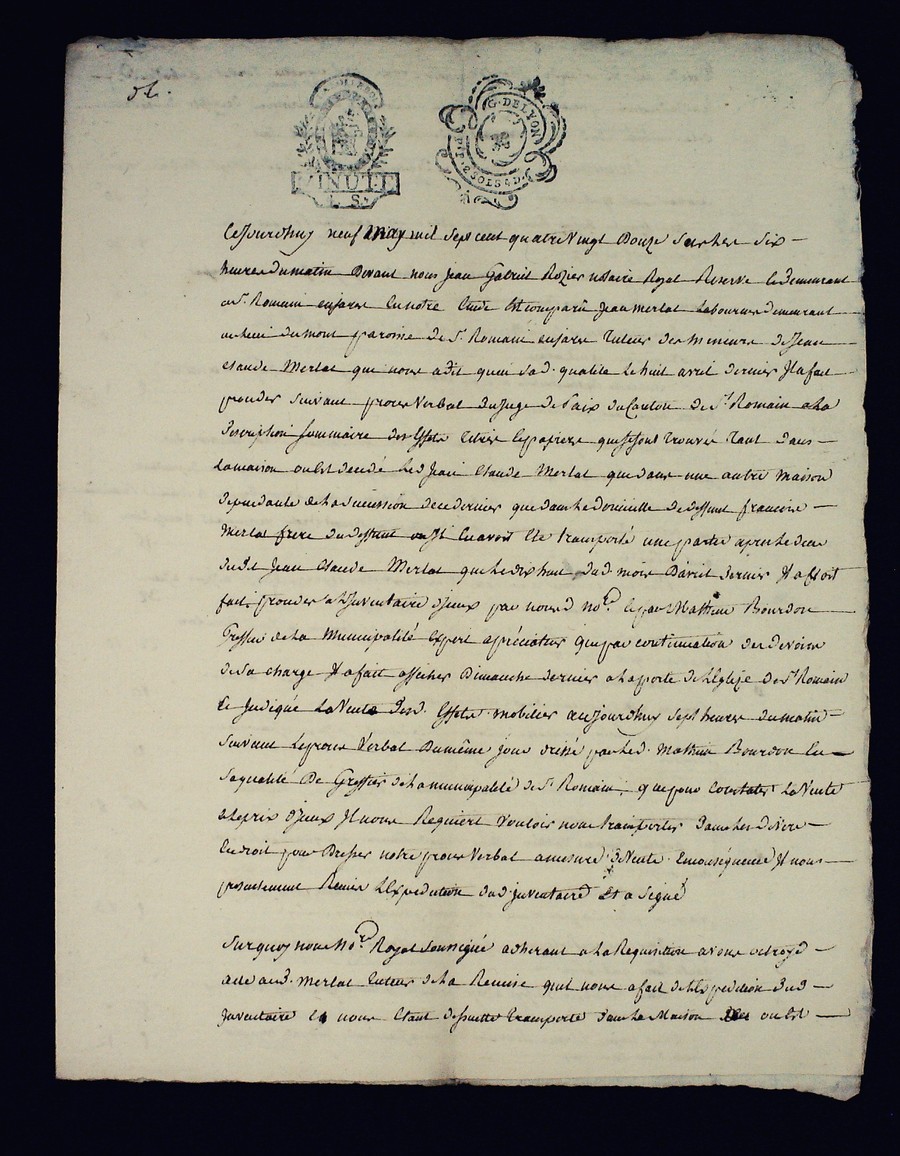 MINUTE
G. DE LYON
PET. 2 SOLS 4 D.
Cejourdhuy neuf may mil sept cent quatre vingt Douze Sur les Six
heures du matin Devant nous Jean Gabriel Rozier notaire Royal Reservé le demeurant
a St. Romain en jarez en notre Etude Est comparû Jean Merlat Laboureur demeurant
au lieu du mont paroisse de St. Romain en jarez Tuteur des mineurs de Jean
Claude Merlat qui nous a dit qu'en sad. qualité Le huit avril dernier Il a fait
proceder Suivant procès Verbal du Juge de Paix du Canton de St. Romain a La
Description Sommaire des Effets titres Et papiers qui se sont trouvés Tant dans
La maison ou Est decedé Led. Jean Claude Merlat que dans une autre Maison
dependante de La succession de ce dernier que dans Le Domicille de deffunt francois
Merlat frere du deffunt ou Il En avoit Eté transporté une partie après Le deces
dudit Jean Claude Merlat que Le dix huit dud. mois D'avril dernier Il a fait
fait proceder a L'Inventaire d'Iceux par nousd. nore. Et par Mathieu Bourdon
Greffier de La Municipalité Expert apréciateur que par continuation des devoirs
de Sa charge Il a fait afficher Dimanche dernier a La porte de L'Eglise de St. Romain
Et Indiqué La Vente Desd. Effets mobiliers aujourdhuy Sept heures du matin
Suivant Le procès Verbal Du même jour dressé par Led. Mathieu Bourdon En
Sa qualité De Greffier de La municipalité de St. Romain, que pour Constater La Vente
et Le prix d'Iceux Il nous Requiert Vouloir nous transporter Dans Les divers
Endroit pour Dresser notre procès Verbal a mesure de Vente. En conséquence Il nous
presentement Remis L'Expedition dud. Inventaire Et a Signé
Surquoy nous Nore. Royal Soussigné adherant a La Requisition avons octroyé
acte aud. Merlat Tuteur de La Remise quil nous a fait de L'Expedition dud.
Inventaire Et nous Etant de suitte transporté dans La Maison ou Est